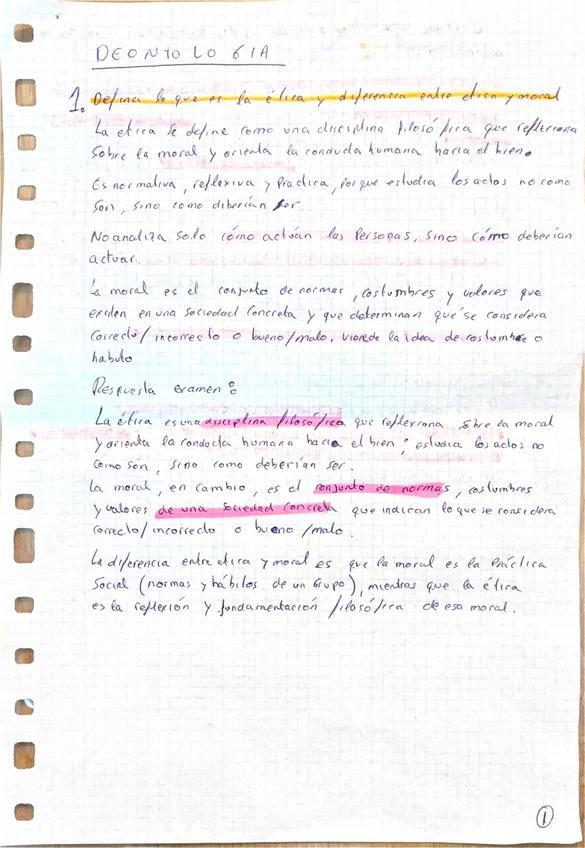 DEONTOLOGIA
1. Defina lo que es la ética y diferencia entre etica y moral
La etica se define como una disciplina filosófica que reflexiona
sobre la moral y orienta la conducta humana hacia el bien.
Es normativa, reflexiva y Practica, porque estudia los actos no como
son, sino como diberían ser.
No analiza solo cómo actúan las Personas, sino cómo deberían
actuar.
La moral es el conjunto de normas, costumbres y valores que
existen en una sociedad concreta y que determinan que se considera
correcto/incorrecto o bueno/malo. Viene de la idea de costumbre o
habito
Respuesta examen:
La ética es una disciplina filosófica que reflexiona sobre la moral
y orienta la conducta humana hacia el bien; estudia los actos no
como son, sino como deberían ser.
La moral, en cambio, es el conjunto de normas, costumbres
y valores de una sociedad concreta que indican lo que se considera
correcto/incorrecto o bueno/malo.
La diferencia entre etica y moral es que la moral es la Práctica
Social (normas y hábitos de un Grupo), mientras que la ética
es la reflexión y fundamentación filosófica de esa moral.
1